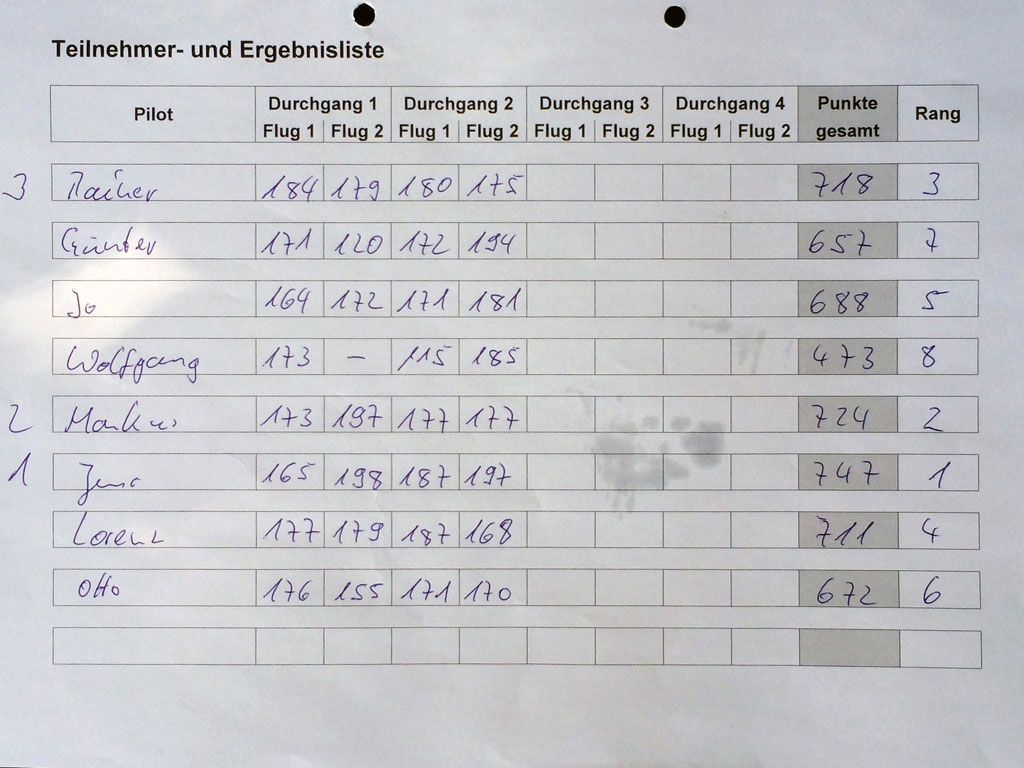 Teilnehmer- und Ergebnisliste
Pilot Durchgang 1 Durchgang 2 Durchgang 3 Durchgang 4 Punkte gesamt Rang
Flug 1 Flug 2 Flug 1 Flug 2 Flug 1 Flug 2 Flug 1 Flug 2
3 Rainer 184 179 180 175 718 3
Günter 171 120 172 194 657 7
Jo 164 172 171 181 688 5
Wolfgang 173 – 115 185 473 8
2 Markus 173 197 177 177 724 2
1 Jens 165 198 187 197 747 1
Lorenz 177 179 187 168 711 4
Otto 176 155 171 170 672 6